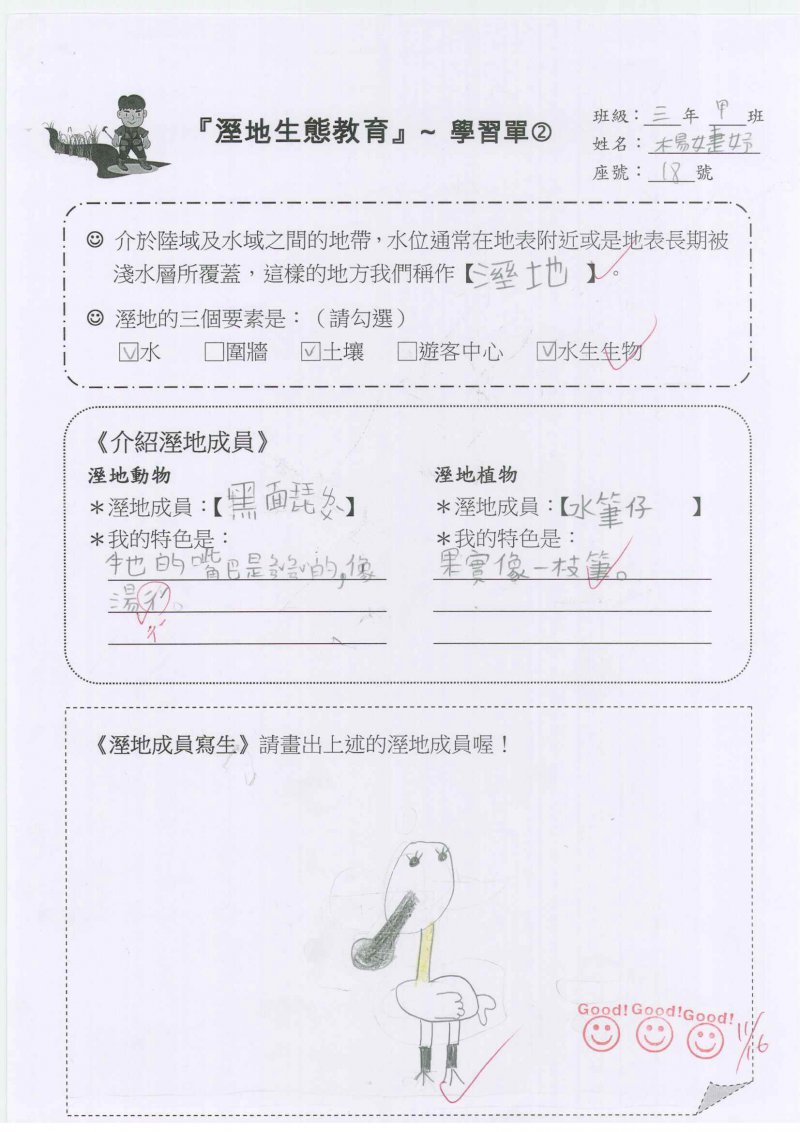 『溼地生態教育』~ 學習單②
班級：三年甲班
姓名：楊婕妤
座號：18號
☺ 介於陸域及水域之間的地帶，水位通常在地表附近或是地表長期被
淺水層所覆蓋，這樣的地方我們稱作【溼地】。
☺ 溼地的三個要素是：（請勾選）
☑水 □圍牆 ☑土壤 □遊客中心 ☑水生生物
《介紹溼地成員》
溼地動物
＊溼地成員：【黑面琵】
＊我的特色是：
牠的嘴巴是的，像
湯。
溼地植物
＊溼地成員：【水筆仔】
＊我的特色是：
果實像一枝筆。
《溼地成員寫生》請畫出上述的溼地成員喔！
Good! Good! Good!
11/16